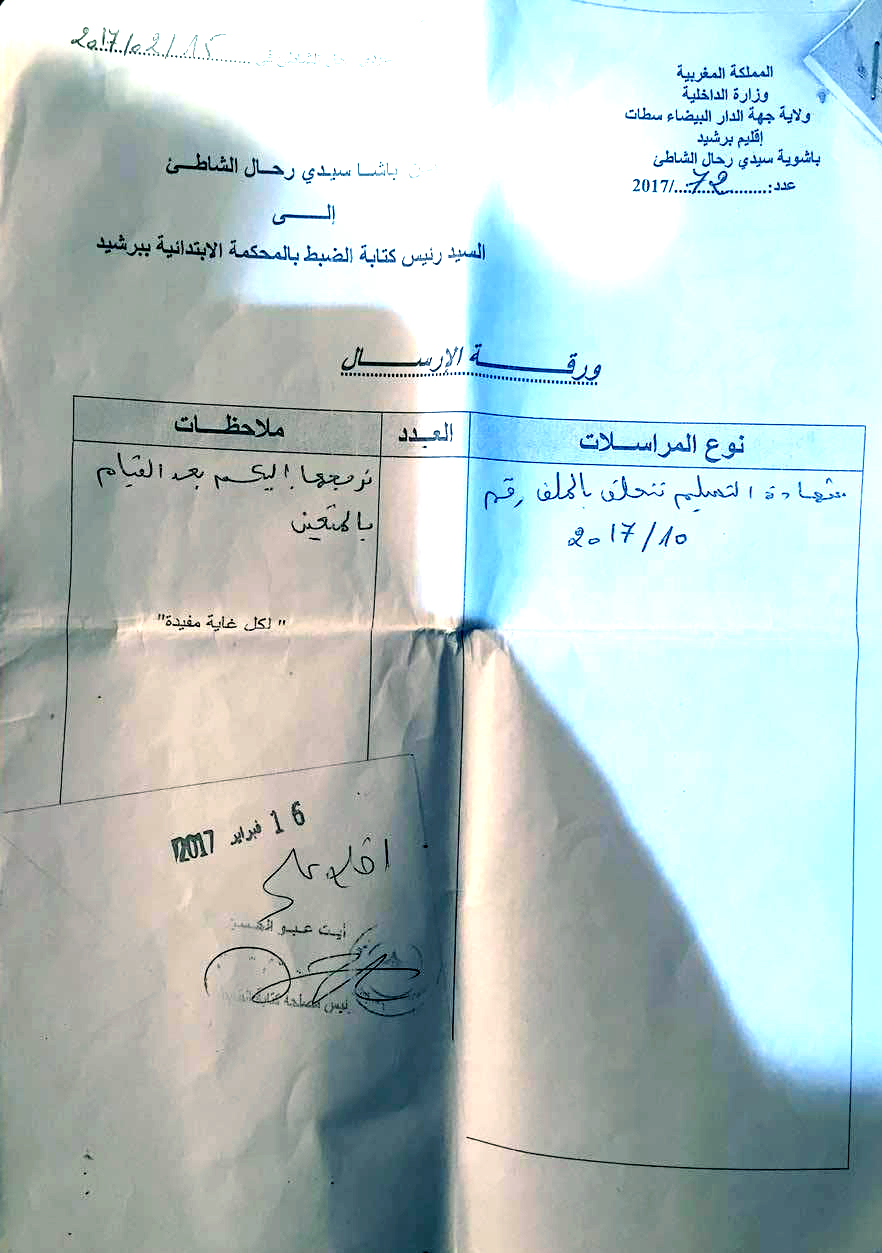 المملكة المغربية
وزارة الداخلية
ولاية جهة الدار البيضاء سطات
إقليم برشيد
باشوية سيدي رحال الشاطئ
عدد:........72..../2017
2017/02/15
باشا سيدي رحال الشاطئ
إلى
السيد رئيس كتابة الضبط بالمحكمة الابتدائية ببرشيد
ورقة الإرسال
نوع المراسلات العدد ملاحظات
شهادة التسليم تتعلق بالملف رقم
2017/10
نرجعها إليكم بعد القيام
بالمتعين
"لكل غاية مفيدة"
16 فبراير 2017
أيت عبو
رئيس مصلحة كتابة